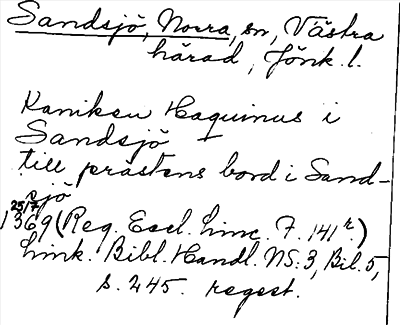 Sandsjö, Norra, sn, Västra
härad, Jönk. l.
Kaniken Haquinus i
Sandsjö
till prästens bord i Sand-
sjö
25/7
1369 (Reg. Eccl. Linc. F. 141 r.)
Link. Bibl. Handl. NS: 3, Bil. 5,
s. 245. regest.